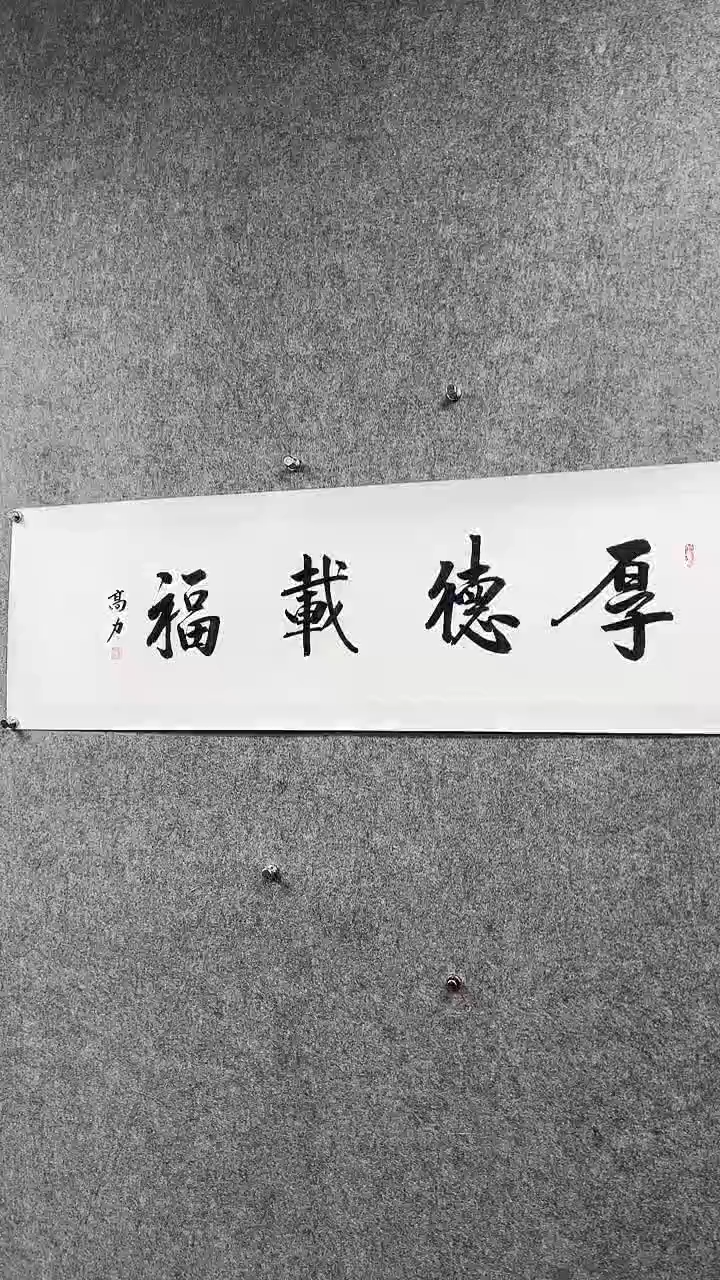 厚德載福
高力